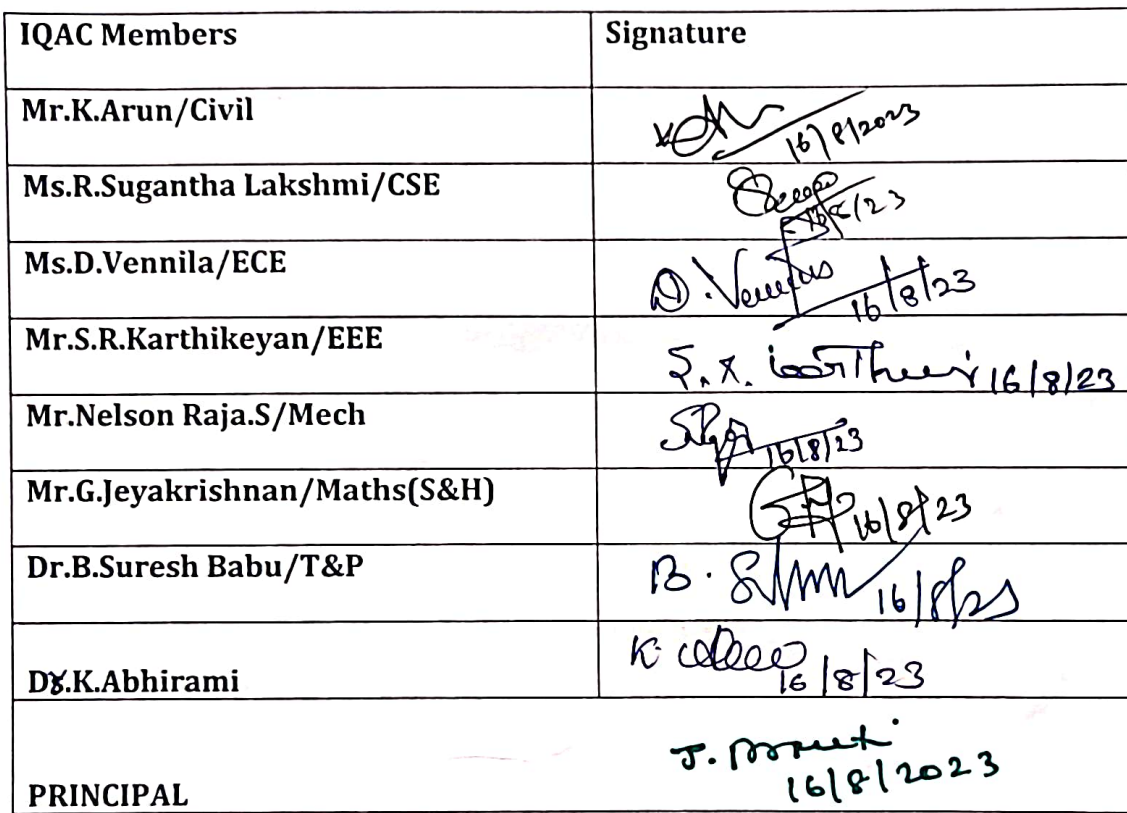 IQAC Members Signature
Mr.K.Arun/Civil 16/8/2023
Ms.R.Sugantha Lakshmi/CSE
Ms.D.Vennila/ECE D. 16/8/23
Mr.S.R.Karthikeyan/EEE 16/8/23
Mr.Nelson Raja.S/Mech 16/8/23
Mr.G.Jeyakrishnan/Maths(S&H) 16/8/23
Dr.B.Suresh Babu/T&P B. 16/8/23
Dr.K.Abhirami K. 16/8/23
PRINCIPAL J.
16/8/2023